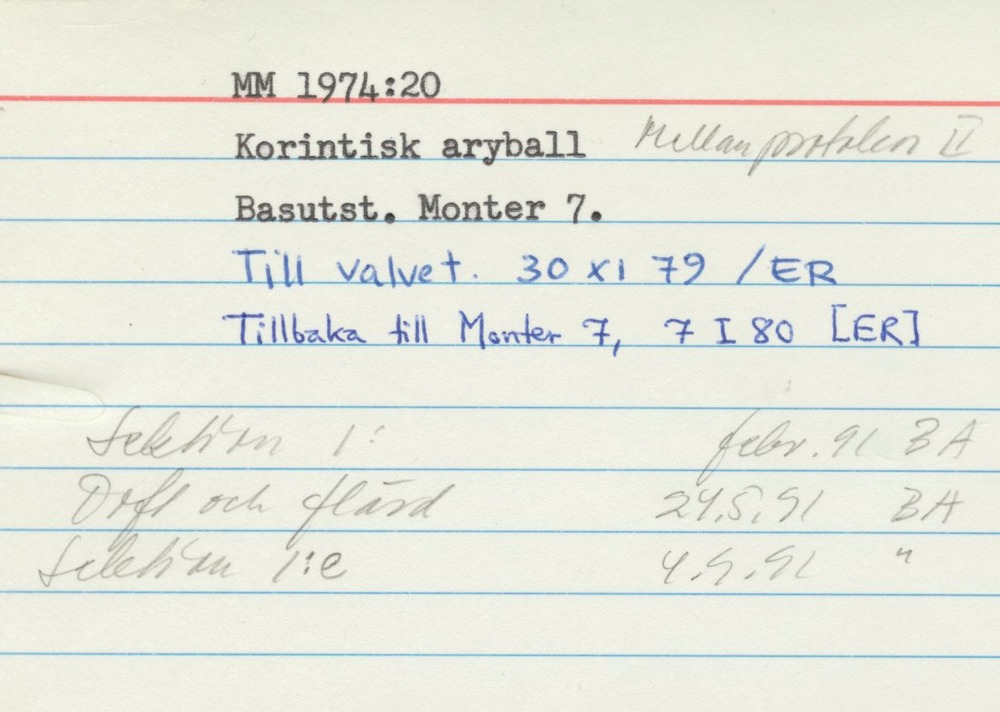 MM 1974:20
Korintisk aryball Mellanprotokon II
Basutst. Monter 7.
Till valvet. 30 XI 79 /ER
Tillbaka till Monter 7, 7 I 80 [ER]
Sektion 1: febr. 91 BA
Doft och flärd 24.5.91 BA
Sektion 1:e 4.9.91 "